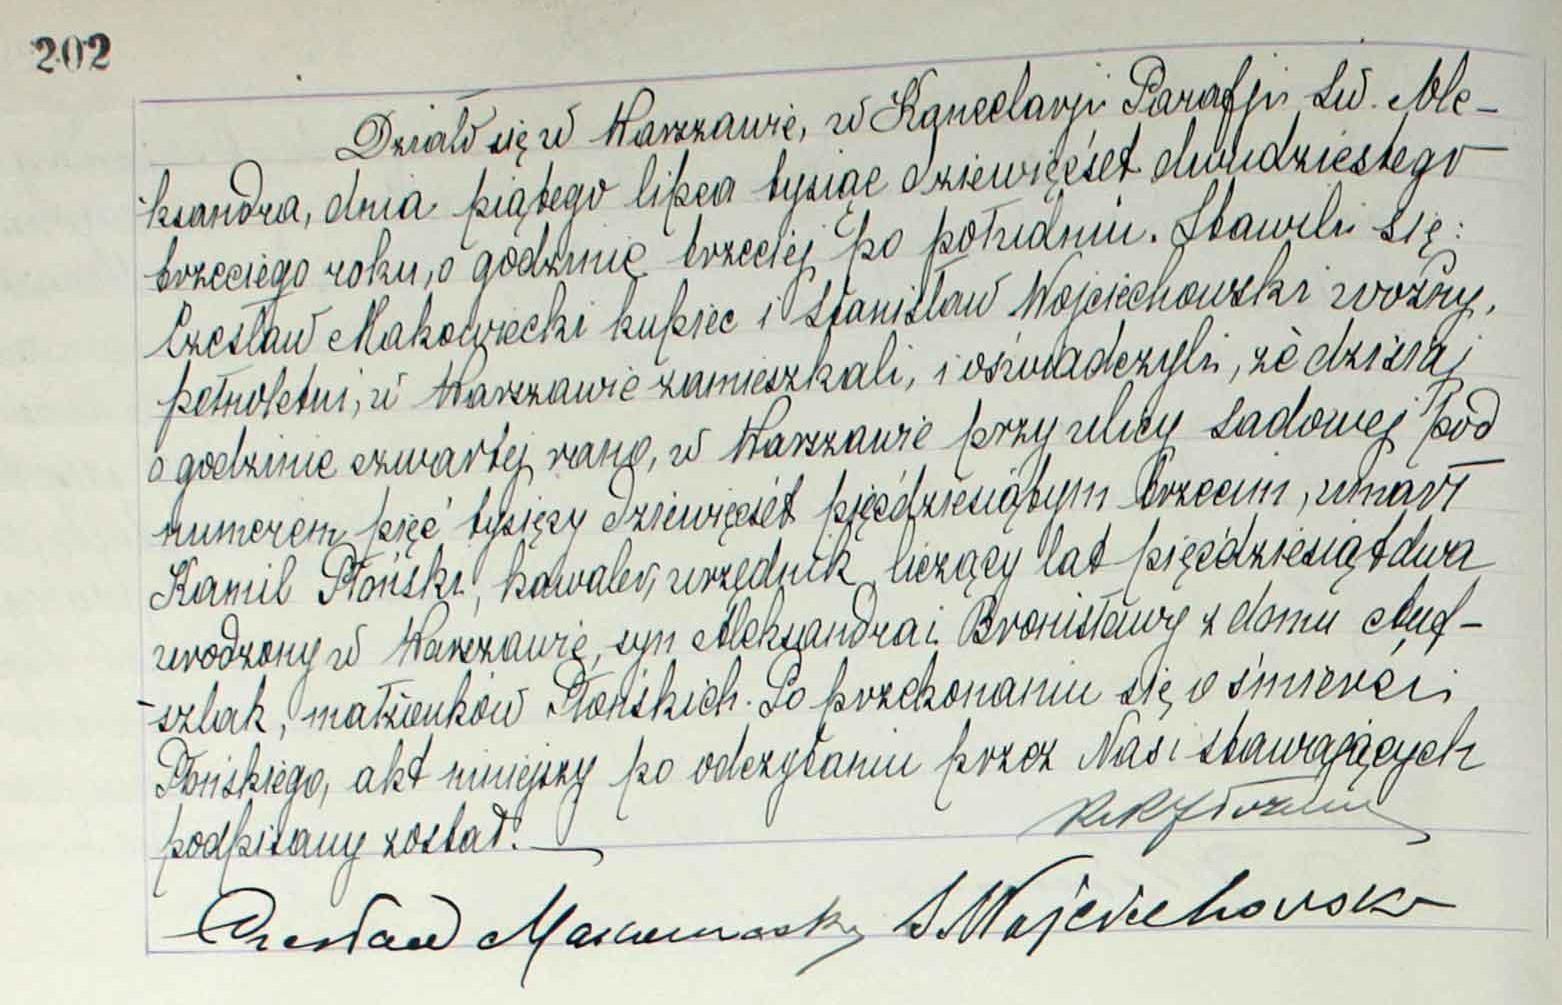 202
Działo się w Warszawie, w Kancelarji Parafji Św. Ale-
ksandra, dnia piątego lipca tysiąc dziewięćset dwudziestego
trzeciego roku, o godzinie trzeciej po południu. Stawili się:
Czesław Makowiecki kupiec i Stanisław Wojciechowski woźny,
pełnoletni, w Warszawie zamieszkali, i oświadczyli, że dzisiaj
o godzinie czwartej rano, w Warszawie przy ulicy Sadowej pod
numerem pięć tysięcy dziewięćset pięćdziesiątym trzecim, umarł
Kamil Płoński, kawaler, urzędnik liczący lat pięćdziesiąt dwa
urodzony w Warszawie, syn Aleksandra i Bronisławy z domu Auf-
szlak, małżonków Płońskich. Po przekonaniu się o śmierci
Płońskiego, akt niniejszy po odczytaniu przez Nas i stawających
podpisany został.
Czesław Makowiecki S. Wojciechowski